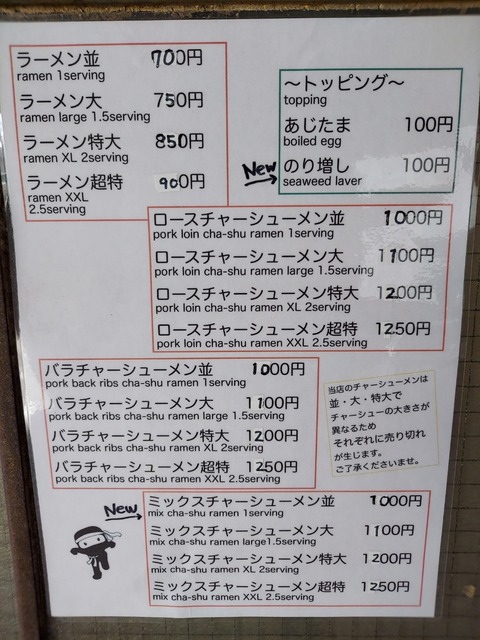 ラーメン並 700円
ramen 1serving
ラーメン大 750円
ramen large 1.5serving
ラーメン特大 850円
ramen XL 2serving
ラーメン超特 900円
ramen XXL
2.5serving
～トッピング～
topping
あじたま 100円
boiled egg
New
のり増し 100円
seaweed laver
ロースチャーシューメン並 1000円
pork loin cha-shu ramen 1serving
ロースチャーシューメン大 1100円
pork loin cha-shu ramen large 1.5serving
ロースチャーシューメン特大 1200円
pork loin cha-shu ramen XL 2serving
ロースチャーシューメン超特 1250円
pork loin cha-shu ramen XXL 2.5serving
バラチャーシューメン並 1000円
pork back ribs cha-shu ramen 1serving
バラチャーシューメン大 1100円
pork back ribs cha-shu ramen large 1.5serving
バラチャーシューメン特大 1200円
pork back ribs cha-shu ramen XL 2serving
バラチャーシューメン超特 1250円
pork back ribs cha-shu ramen XXL 2.5serving
当店のチャーシューメンは
並・大・特大で
チャーシューの大きさが
異なるため
それぞれに売り切れ
が生じます。
ご了承くださいませ。
New
ミックスチャーシューメン並 1000円
mix cha-shu ramen 1serving
ミックスチャーシューメン大 1100円
mix cha-shu ramen large1.5serving
ミックスチャーシューメン特大 1200円
mix cha-shu ramen XL 2serving
ミックスチャーシューメン超特 1250円
mix cha-shu ramen XXL 2.5serving